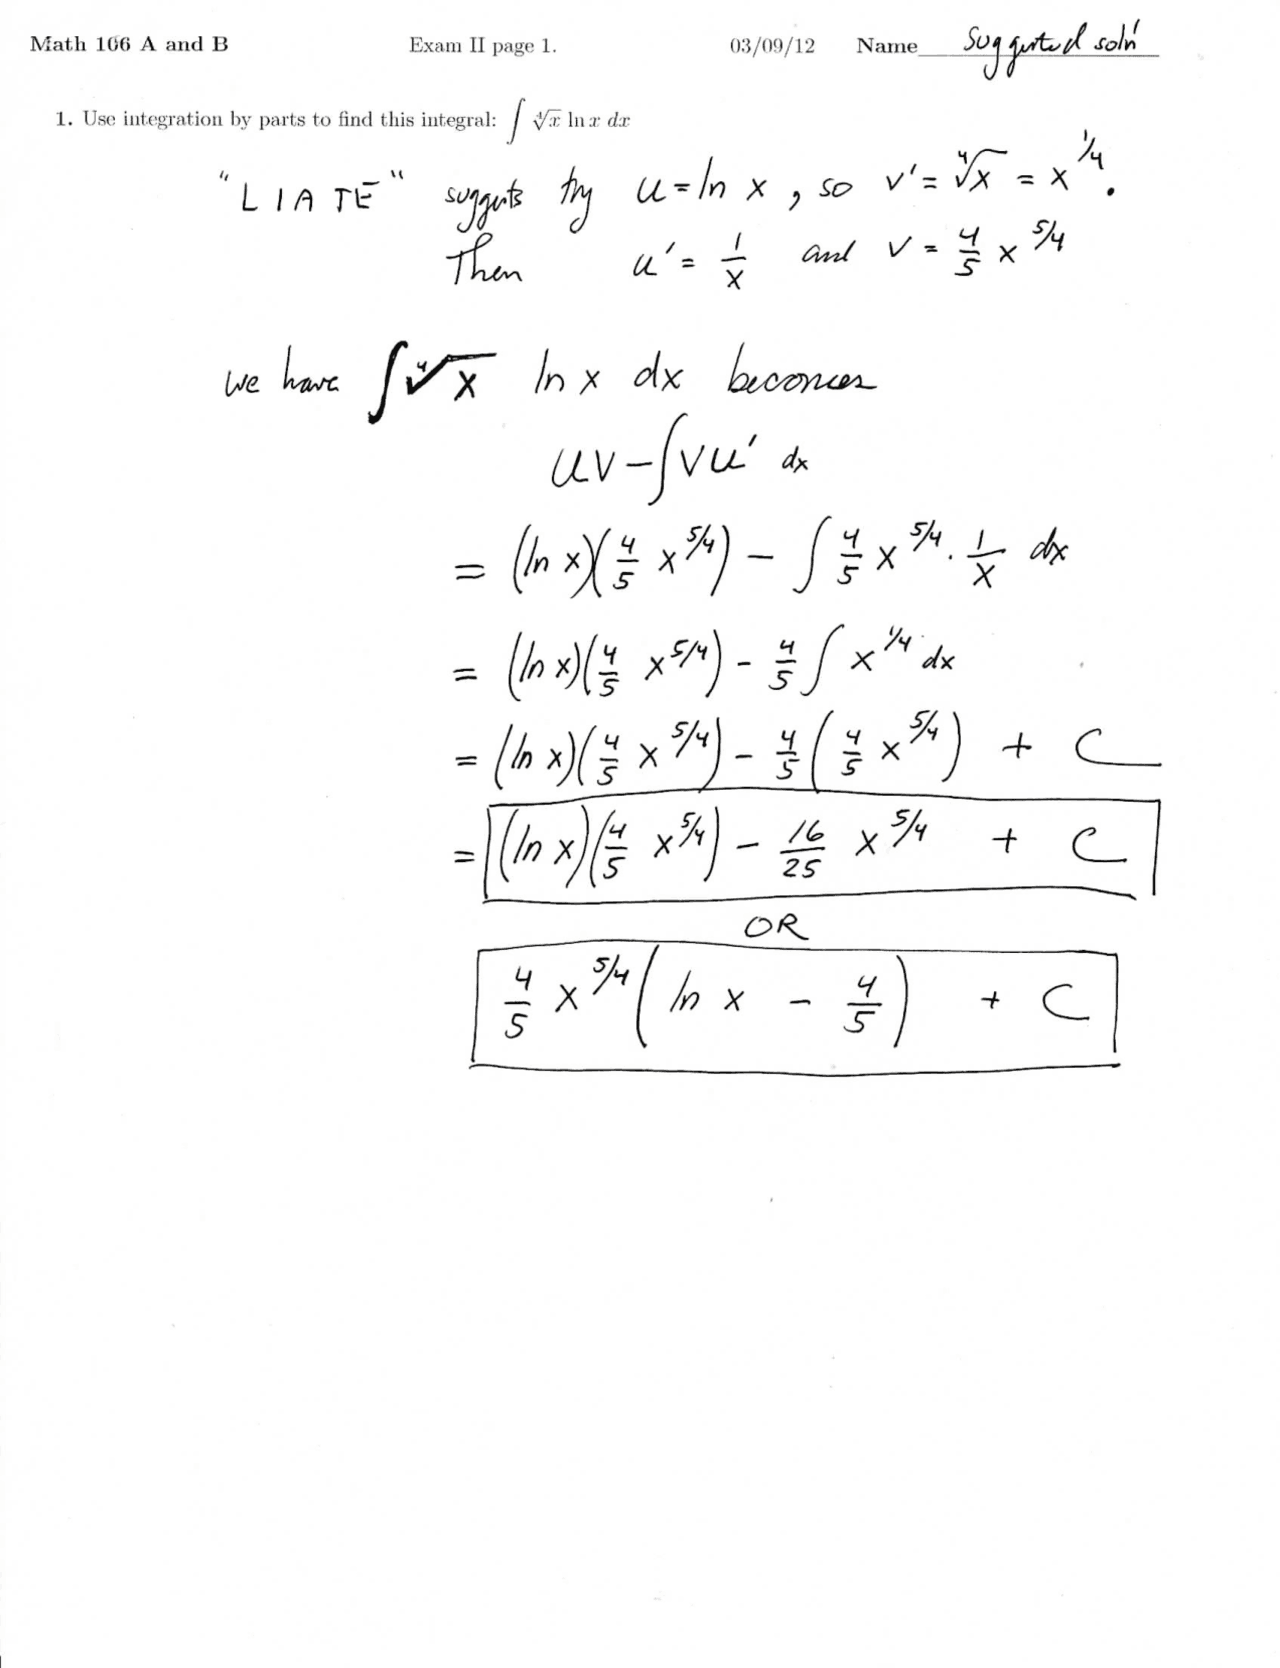 Math 106 A and B Exam II page 1. 03/09/12 Name Suggested sol'n
1. Use integration by parts to find this integral: ∫ ∜x ln x dx
"LIATE" suggests try u = ln x, so v' = ∜x = x^{1/4}.
Then u' = 1/x and v = 4/5 x^{5/4}
we have ∫ ∜x ln x dx becomes
uv - ∫ v u' dx
= (ln x)(4/5 x^{5/4}) - ∫ 4/5 x^{5/4} · 1/x dx
= (ln x)(4/5 x^{5/4}) - 4/5 ∫ x^{1/4} dx
= (ln x)(4/5 x^{5/4}) - 4/5 (4/5 x^{5/4}) + C
= (ln x)(4/5 x^{5/4}) - 16/25 x^{5/4} + C
OR
4/5 x^{5/4} (ln x - 4/5) + C